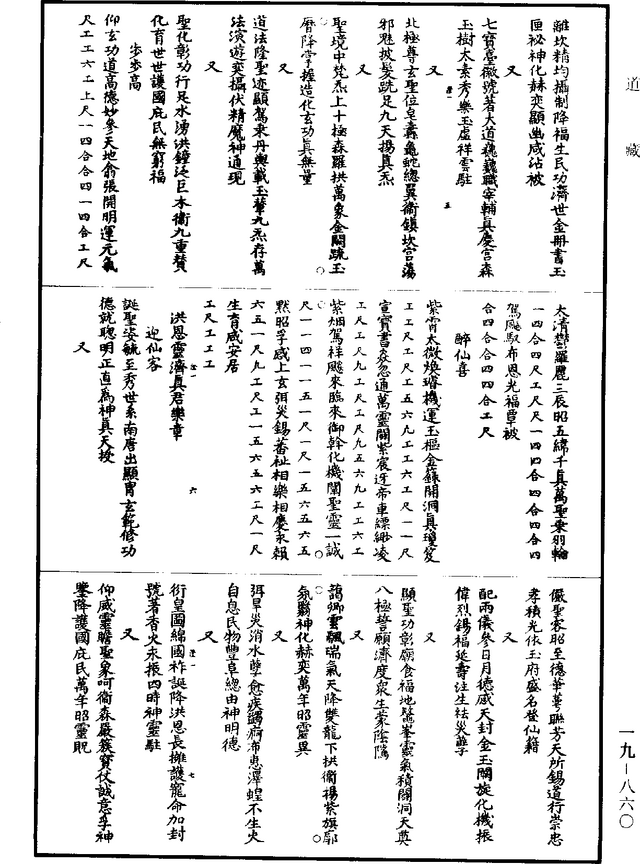 道藏
離坎精均攝制降福生民功濟世金冊書玉
匣祕神化赫奕顯幽咸沾被
又
七寶臺徽號著大道巍巍職宰輔真慶宮森
玉樹太素秀樂玉虛祥雲駐
又
北極尊玄聖位皂纛龜蛇總翼衛鎮坎宮蕩
邪魅披髮跣足九天揚真炁
又
聖境中梵炁上十極森羅拱萬象金闕䟽玉
曆降掌握造化玄功真無量
又
道法隆聖迹顯駕來丹輿載玉輦九炁存萬
法演遊奕攝伏精魔神通現
又
聖化彰功行足水湧洪鐘泛巨木衛九重贊
化育世世護國庶民無窮福
步步高
仰玄功道高德妙參天地翕張開明運元氣
尺工工六工上尺一四合合四一四合工尺
太清欝羅麗三辰昭五緯千真萬聖乘羽輪
一四合四尺工尺尺一四四合四合四合四
駕飈馭布恩光福覃被
合四合合四四合工尺
醉仙喜
紫霄太微煥璿機運玉樞金籙開洞真瓊笈
工工尺工尺工五六九工工六工尺一一尺
宣寶書焱忽通萬靈開紫宸迓帝車縹緲凌
工尺工尺九工尺工尺九五六九工工六工
紫烟駕祥飈來臨來御斡化機闡聖靈一誠
尺一一四一一五一尺一尺一五六五六五
黙昭孚感上玄弭災錫蕃祉相樂相慶永賴
六五一尺九工尺工一五六五六工尺一尺
生育咸安居
工尺工工工
洪恩靈濟真君樂章
迎仙客
誕聖姿毓至秀世系南唐出顯胄玄範修功
德就聰明正直為神真天授
又
儼聖容昭至德華萼聯芳天所錫道行崇忠
孝積光依玉府盛名登仙籍
又
配兩儀參日月德感天封金玉闕旋化機振
偉烈錫福延壽注生祛災孽
又
顯聖功彰廟食福地鰲峯靈氣積闢洞天奠
八極誓願濟度衆生蒙陰隲
又
藹卿雲飄瑞氣天降雙龍下拱衛揚紫旗廓
氛翳神化赫奕萬年昭靈異
又
弭旱災消水孽愈疾蠲痾布惠澤蝗不生火
自息民物豐阜總由神明德
又
衍皇圖綿國祚誕降洪恩長擁護寵命加封
號著香火永振四時神靈駐
又
仰威靈瞻聖象呵衛森嚴簇寶仗誠意孚神
鑒降護國庶民萬年昭靈貺
一九－八六〇